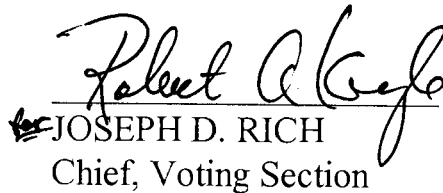 Robert A
for JOSEPH D. RICH
Chief, Voting Section